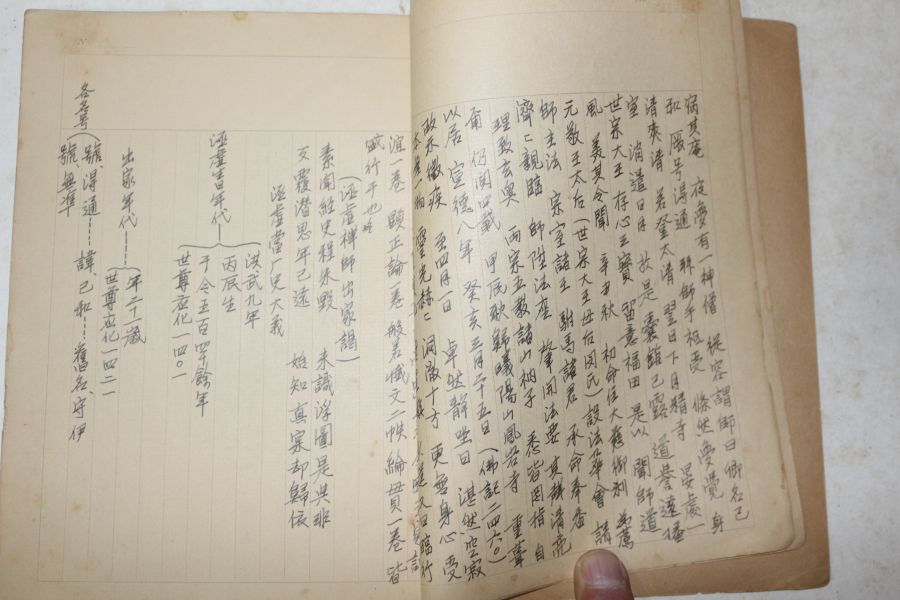 宿其庵 夜夢有一神僧 從容謂師曰卿名己
和 厥号得通 拜師手祖受 翛然夢覺 身
清爽清 若登太清 翌日下月精寺 晏處一
室 消道日月 於是囊錐已露 道譽遠播
世宗大王 存心三寶 留意福田 是以聞師道
風 美其令聞 辛丑秋 初命住大慈御刹 爲薦
元敬王太后 (世宗大王母后閔氏) 設法華會 請
師主法 宗室諸王 駙馬諸君 承命奉香
濟濟親臨 師陞法座 肇開法要 其辭清亮
理致玄奥 兩宗五教諸山衲子 悉皆罔指 自
甬 仍閱四載 甲辰歌歸曦陽山鳳岩寺 重葺
以居 宣德八年 癸亥三月二十五日 (佛記二四六〇)
故示微疾 至四月一日 卓然靜坐曰 湛然空寂
本無一物 靈光赫赫 洞徹十方 更無身心 受
又曰臨行
誼一卷 顯正論一卷 般若懺文二帙 綸貫一卷 皆
試行于世也
(涵虛禪師出家謁)
素聞經史程朱毀 未識浮圖是與非
反覆潛思年已遠 始知真宗却歸依
涵虛堂一史大義
涵虛吉年代
洪武九年
丙辰生
于今五百四十餘年
世尊應化一四〇一
出家年代
年二十一歲
世尊應化一四二一
各名号
號、得通 諱己和 舊名、守伊
號、無準